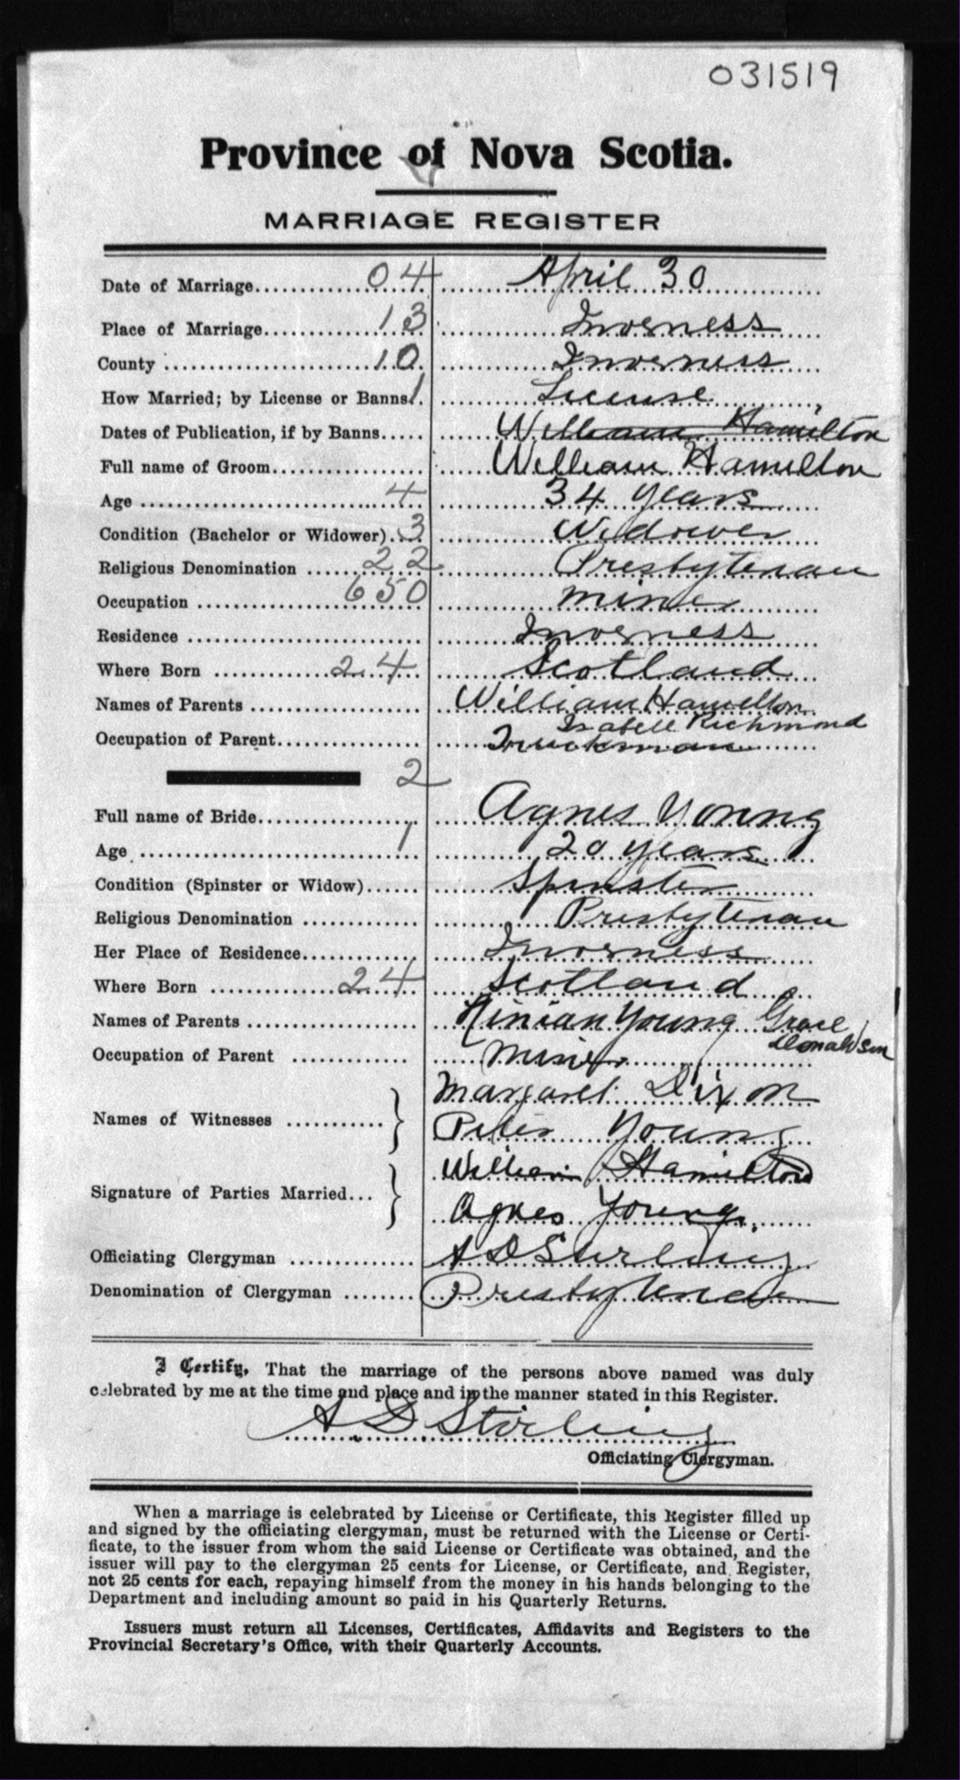 031519
Province of Nova Scotia.
MARRIAGE REGISTER
Date of Marriage............04 April 30
Place of Marriage............13 Inverness
County............10 Inverness
How Married; by License or Banns.1 License
Dates of Publication, if by Banns..... William Hamilton
Full name of Groom............ William Hamilton
Age............4 34 years
Condition (Bachelor or Widower)..3 Widower
Religious Denomination......22 Presbyterian
Occupation............650 Miner
Residence............ Inverness
Where Born............24 Scotland
Names of Parents............ William Hamilton
Isabell Richmond
Occupation of Parent............ Truckman
2
Full name of Bride............ Agnes Young
Age............1 20 years
Condition (Spinster or Widow)...... Spinster
Religious Denomination............ Presbyterian
Her Place of Residence............ Inverness
Where Born............24 Scotland
Names of Parents............ Ninian Young Grace
Donaldson
Occupation of Parent............ Miner
Names of Witnesses............} Margaret Dixon
Peter Young
Signature of Parties Married...} William Hamilton
Agnes Young.
Officiating Clergyman............ A D Stirling
Denomination of Clergyman........ Presbyterian
I Certify, That the marriage of the persons above named was duly
celebrated by me at the time and place and in the manner stated in this Register.
A. D. Stirling
Officiating Clergyman.
When a marriage is celebrated by License or Certificate, this Register filled up
and signed by the officiating clergyman, must be returned with the License or Certi-
ficate, to the issuer from whom the said License or Certificate was obtained, and the
issuer will pay to the clergyman 25 cents for License, or Certificate, and Register,
not 25 cents for each, repaying himself from the money in his hands belonging to the
Department and including amount so paid in his Quarterly Returns.
Issuers must return all Licenses, Certificates, Affidavits and Registers to the
Provincial Secretary's Office, with their Quarterly Accounts.